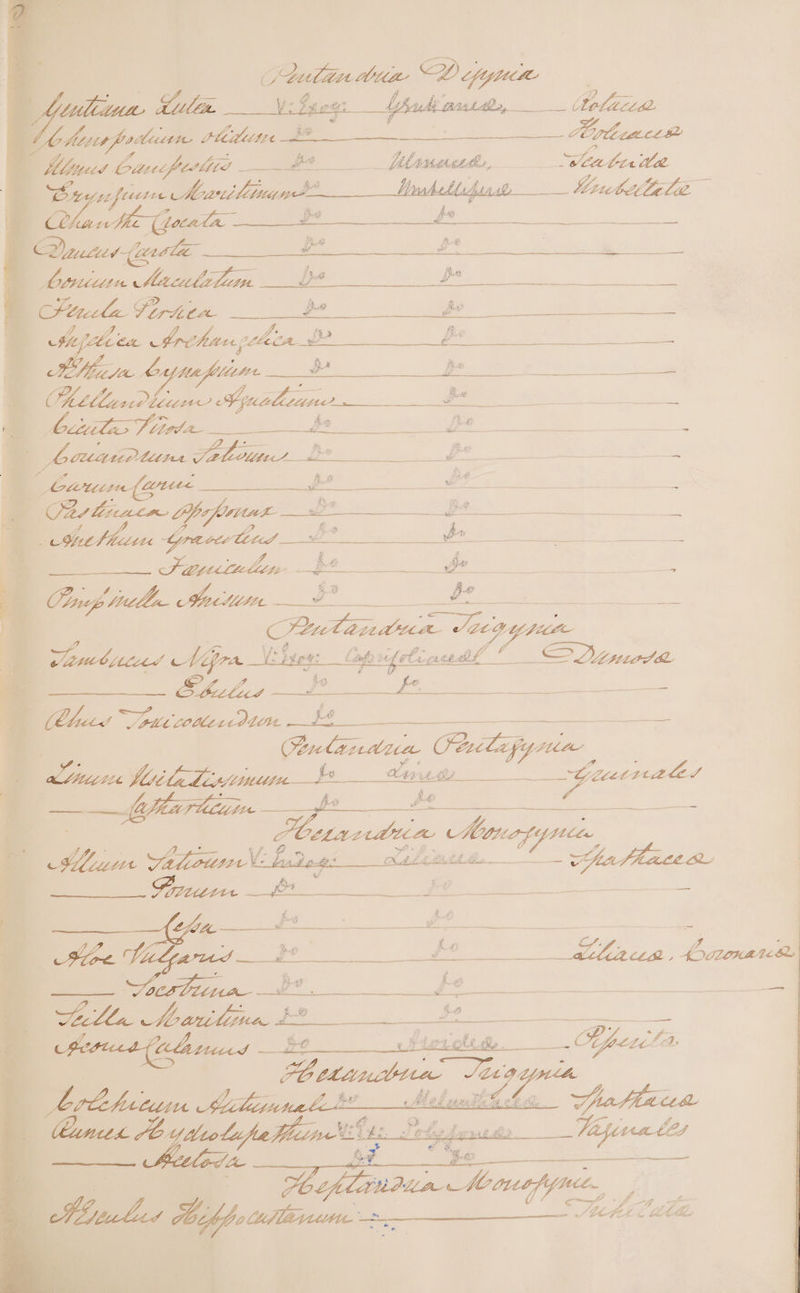 Pentandria Digynia
Gentiana Lutea V: Exog: Gentianeæ, Rotaceæ
Chenopodium Olidum Do Holeraceæ
Ulmus Campestris Do Ulmaceæ, Scabridæ
Eryngium Maritimum Do Umbelliferæ Umbellatæ
Œnanthe Crocata Do Do
Daucus Carota Do Do
Conium Maculatum Do Do
Ferula Persica Do Do
Angelica Archangelica Do Do
Æthusa Cynapium Do Do
Phellandrium Aquaticum Do
Cicuta Virosa Do Do
Coriandrum Sativum Do Do
Carum Carui Do Do
Pastinaca Opoponax Do Do
Anethum Graveolens Do Do
Fœniculum Do Do
Pimpinella Anisum Do Do
Pentandria Trigynia
Sambucus Nigra V: Exog: Caprifoliaceæ Dumosæ
Ebulus Do Do
Rhus Toxicodendron Do
Pentandria Pentagynia
Linum Usitatissimum Do Lineæ Gruinales
Catharticum Do Do
Hexandria Monogynia
Allium Sativum V: Endog: Liliaceæ Spathaceæ
Porrum Do Do
Cepa Do Do
Aloe Vulgaris Do Do Liliaceæ, Coronariæ
Socotrina Do Do
Scilla Maritima Do Do
Acorus Calamus Do Aroideæ Piperitæ
Hexandria Trigynia
Colchicum Autumnale Do Melanthaceæ Spathaceæ
Rumex Hydrolapathum V: Ex: Polygoneæ Vaginales
Acetosa Do Do
Heptandria Monogynia
Æsculus Hippocastanum Trihilatæ